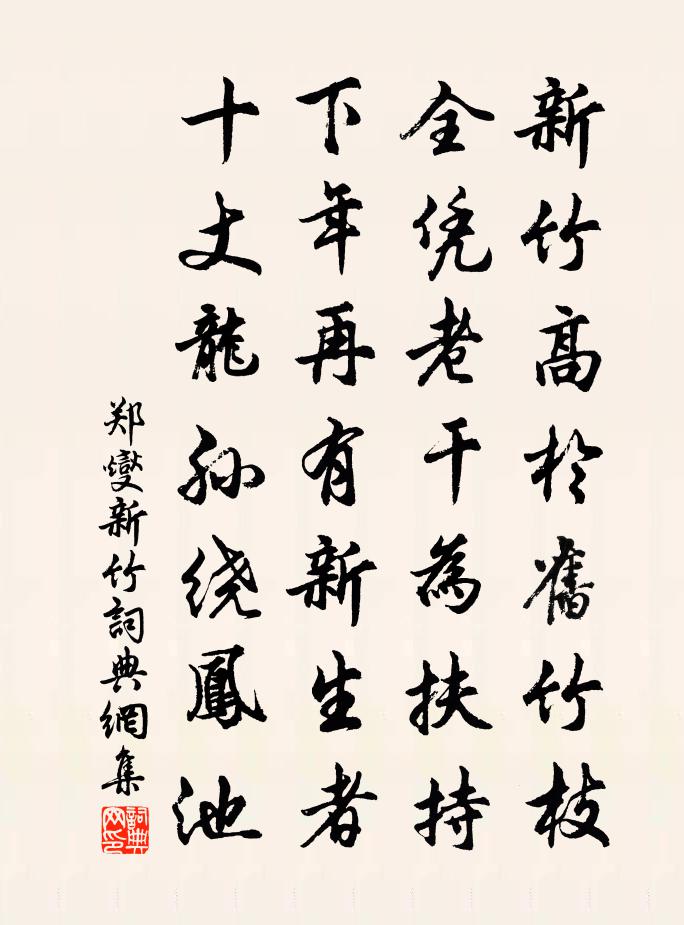 新竹高於舊竹枝
全凭老干為扶持
下年再有新生者
十丈龍孙绕鳳池
郑燮新竹詞典網集
詞典
网印